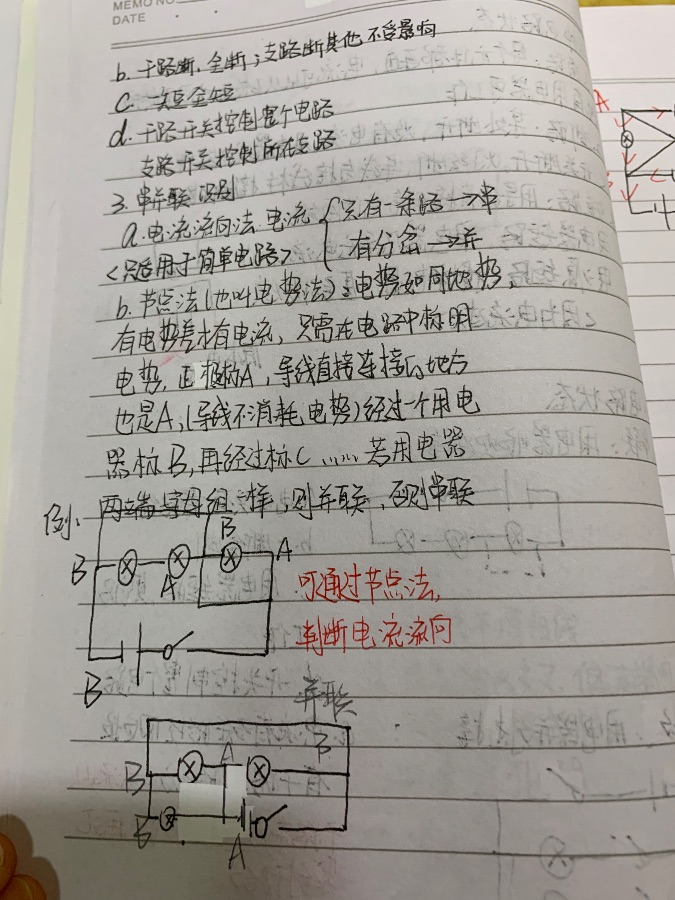 MEMO NO.
DATE
b. 干路断,全断;支路断其他不受影响
c. 一短全短
d. 干路开关控制整个电路
支路开关控制所在支路
3. 串并联识别
a. 电流流向法 电流 { 只有一条路→串
<只适用于简单电路> 有分岔→并
b. 节点法(也叫电势法):电势如同地势,
有电势差才有电流,只需在电路中标明
电势,正极标A,导线直接连接的地方
也是A,(导线不消耗电势)经过一个用电
器标B,再经过标C……若用电器
例. 两端字母组一样,则并联,否则串联
B
B A A
可通过节点法,
判断电流流向
B
并联
A B
B
B
A
A